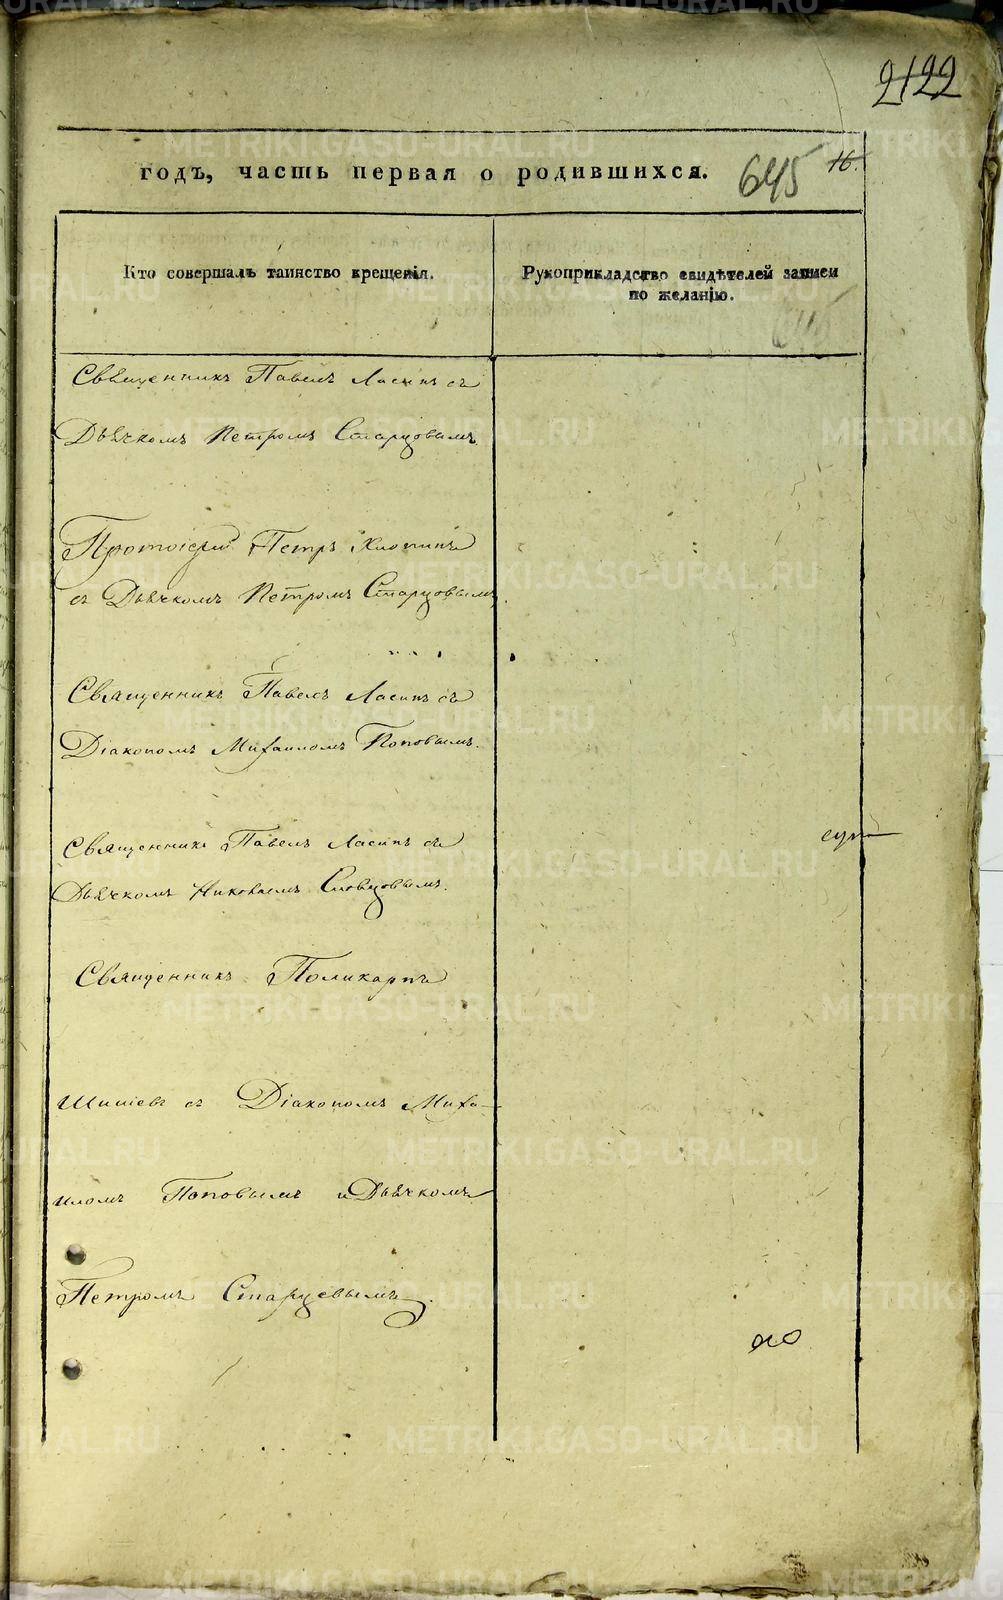 2122
годъ, часть первая о родившихся.
645
16.
Кто совершалъ таинство крещенія.
Рукоприкладство свидѣтелей записи
по желанію.
645
Священникъ Павелъ Ласинъ съ
Дьячкомъ Петромъ Старцовымъ.
Протоіерей Петръ Хлопинъ
съ Дьячкомъ Петромъ Старцовымъ.
Священникъ Павелъ Ласинъ съ
Діакономъ Михаиломъ Поповымъ.
Священникъ Павелъ Ласинъ съ
Дьячкомъ Николаемъ Словцовымъ.
Священникъ Поликарпъ
съ Діакономъ Миха-
иломъ Поповымъ и Дьячкомъ
Петромъ Старцевымъ.
METRIKI.GASO-URAL.RU